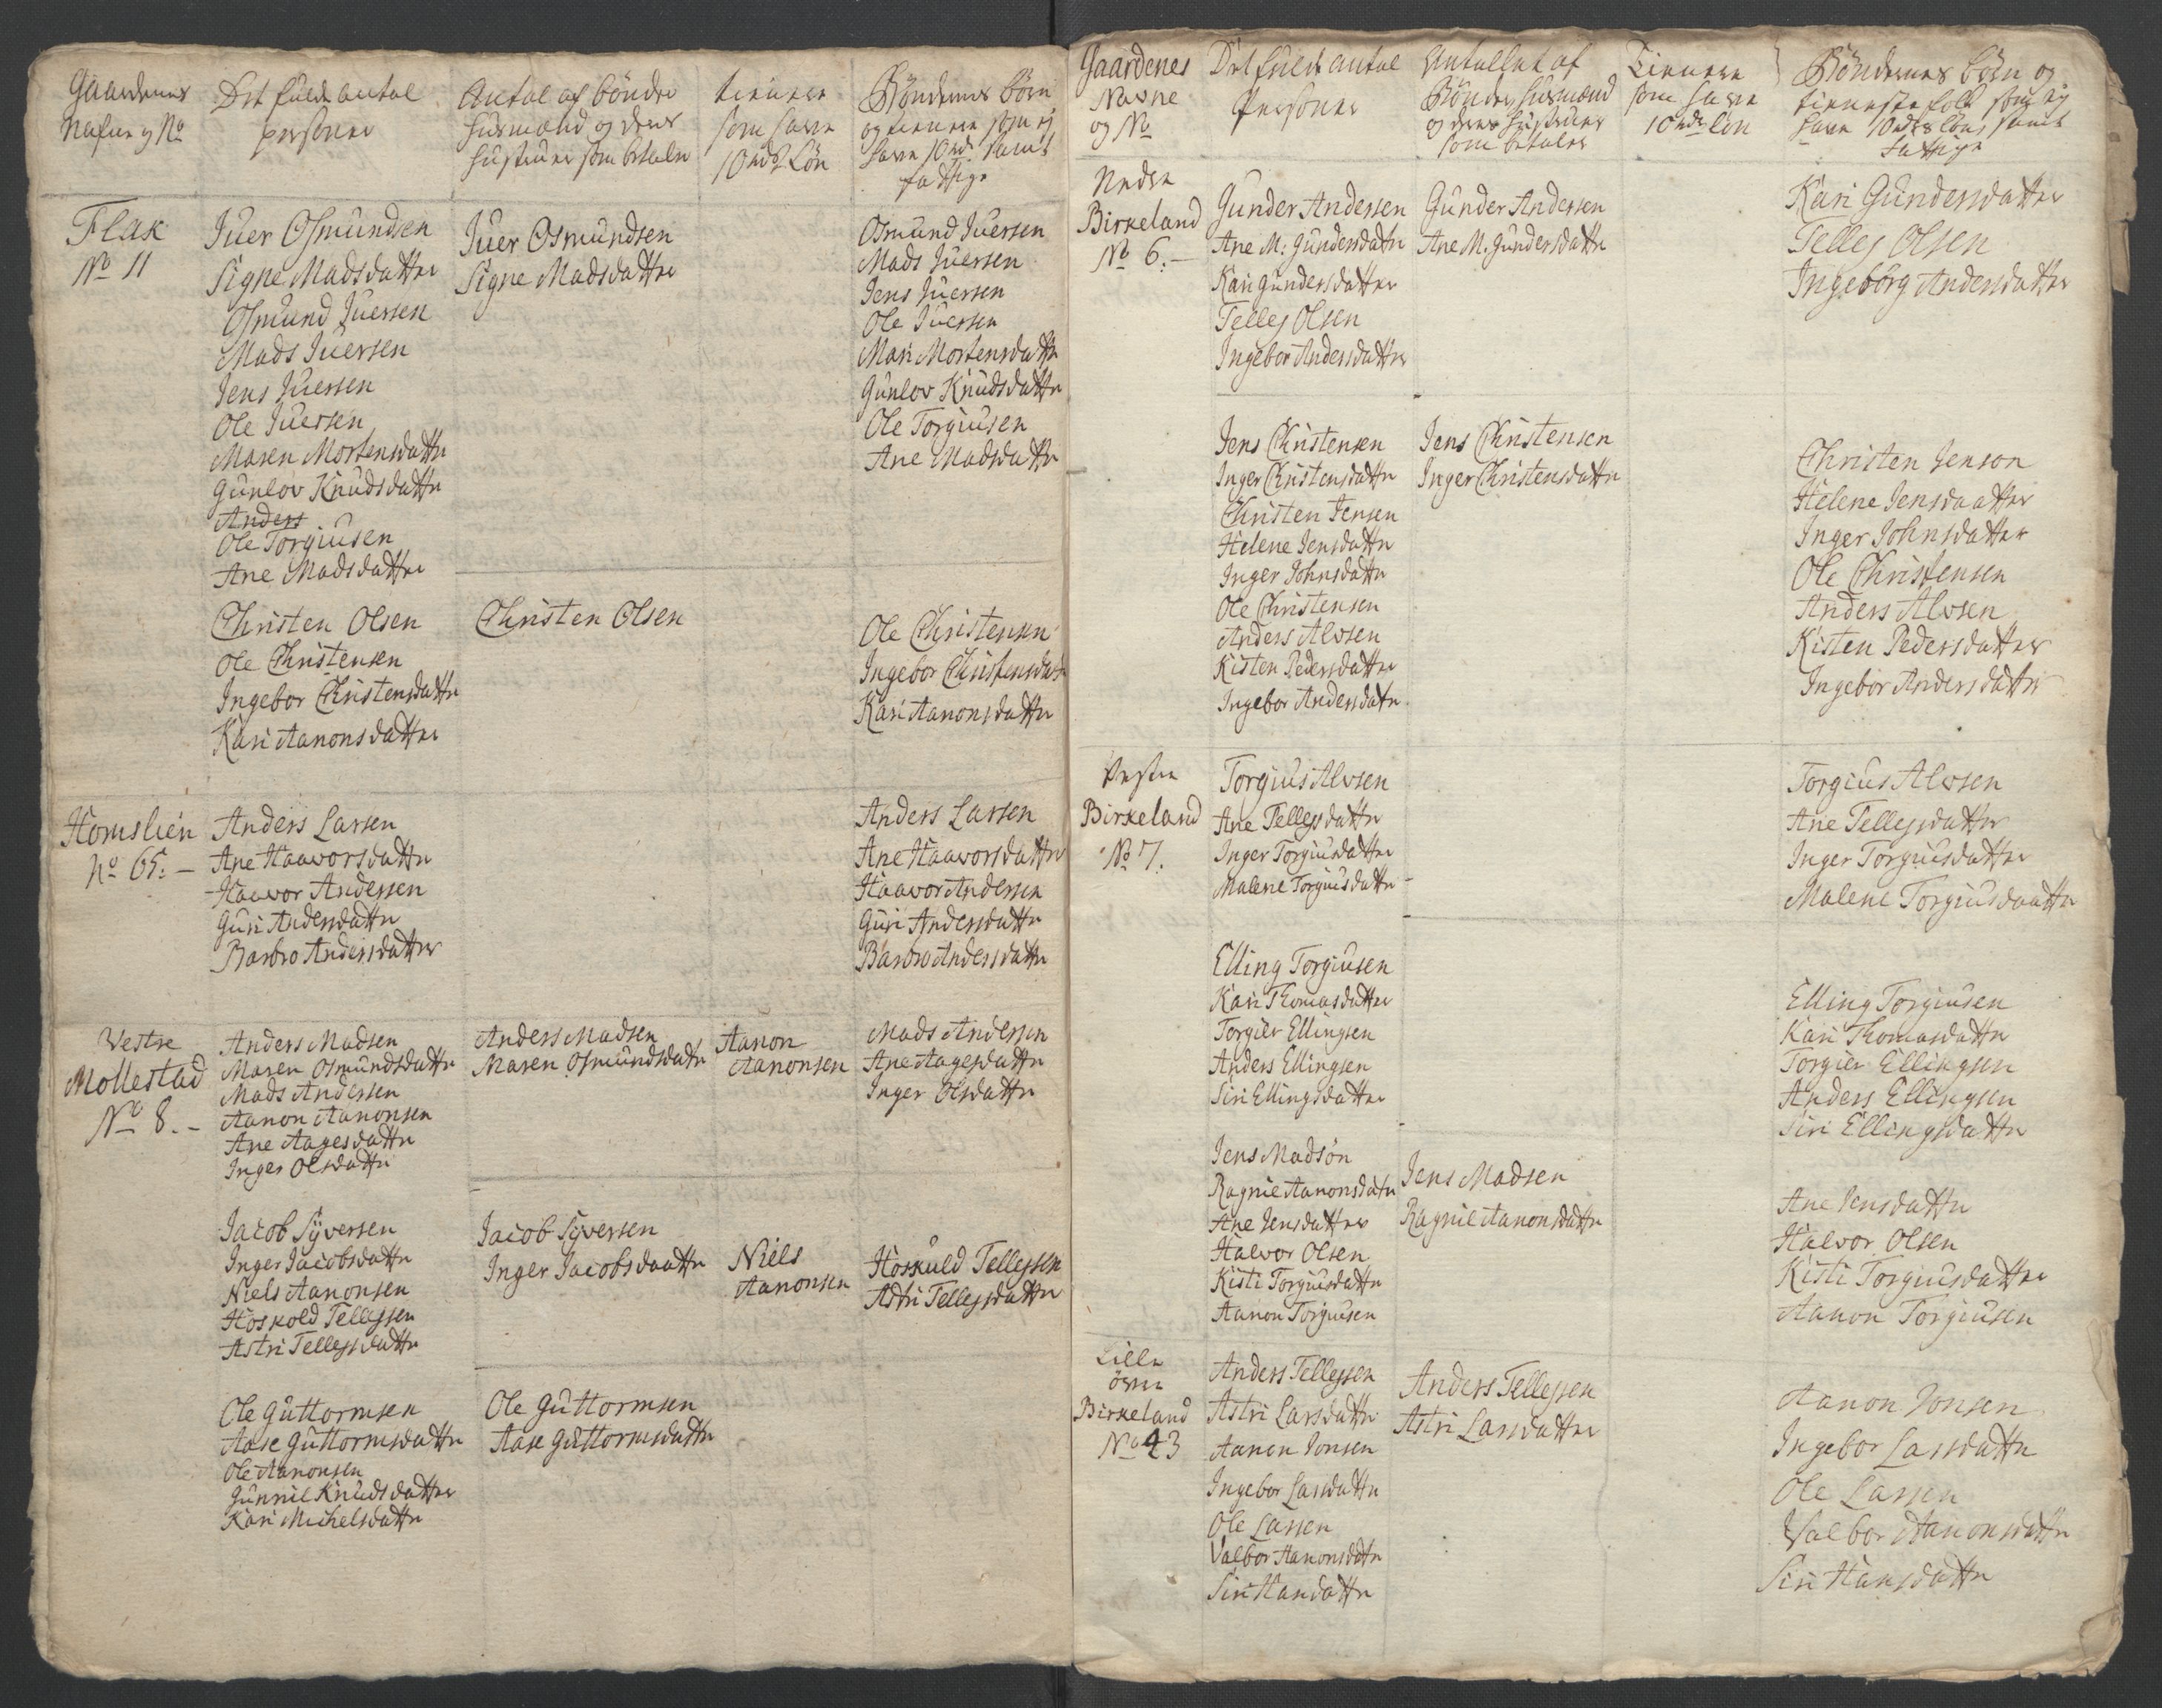 Gaardenes
Nafne og No
Det fulde antal
personer
Antal af bönder
Husmænd og deres
hustruer som betaler
tienere
som have
10 rd Lön
Böndernes börn
og tienere som ej
have 10 rd samt
fattige
Flak
No 11
Juer Osmundsen
Signe Madsdatter
Osmund Juersen
Mads Juersen
Jens Juersen
Ole Juersen
Maren Mortensdattr
Gunlov Knudsdattr
Anders
Ole Torgiusen
Ane Madsdatter
Juer Osmundsen
Signe Madsdatter
Osmund Juersen
Mads Juersen
Jens Juersen
Ole Juersen
Mari Mortensdattr
Gunlov Knudsdattr
Ole Torgiusen
Ane Madsdattr
Christen Olsen
Ole Christensen
Ingebor Christensdattr
Kari Aanonsdatter
Christen Olsen
Ole Christensen
Ingebor Christensdatt
Kari Aanonsdattr
Homslien
No 65. –
Anders Larsen
Ane Haavorsdattr
Haavor Andersen
Guri Andersdattr
Barbro Andersdatter
Anders Larsen
Ane Haavorsdatter
Haavor Andersen
Guri Andersdattr
Barbro Andersdattr
Vestre
Mollestad
No 8. –
Anders Madsen
Maren Osmundsdattr
Mads Andersen
Aanon Aanonsen
Ane Aagesdattr
Inger Olsdattr
Anders Madsen
Maren Osmundsdattr
Aanon
Aanonsen
Mads Andersen
Ane Aagesdattr
Inger Olsdattr
Jacob Syversen
Inger Jacobsdattr
Niels Aanonsen
Hoskold Tellefsen
Astri Tellefsdattr
Jacob Syversen
Inger Jacobsdaattr
Niels
Aanonsen
Hoskuld Tellefsen
Astri Tellefsdattr
Ole Guttormsen
Aase Guttormsdattr
Ole Aanonsen
Gunnil Knudsdatter
Kari Michelsdattr
Ole Guttormsen
Aase Guttormsdattr
Gaardenes
Navne
og No
Det fulde antal
Personer
Antallet af
Bönder Husmænd
og deres Hustruer
som betaler
Tienere
som have
10 rdr lön
Böndernes börn og
tienestefolk som ej
have 10 rdrs löns samt
Fattige
Nedre
Birkeland
No 6. –
Gunder Andersen
Ane M: Gundersdattr
Kari Gundersdatter
Tellef Olsen
Ingebor Andersdatter
Gunder Andersen
Ane M: Gundersdattr
Kari Gundersdatter
Tellef Olsen
Ingeborg Andersdatter
Jens Christensen
Inger Christensdattr
Christen Jensen
Helene Jensdattr
Inger Johnsdattr
Ole Christensen
Anders Alvsen
Kisten Pedersdatter
Ingebor Andersdatr
Jens Christensen
Inger Christensdattr
Christen Jenson
Helene Jensdaatter
Inger Johnsdatter
Ole Christensen
Anders Alvsen
Kisten Pedersdatter
Ingebor Andersdatter
Vestre
Birkeland
No 7.
Torgius Alvsen
Ane Tellefsdattr
Inger Torgiusdatter
Malene Torgiusdattr
Torgius Alvsen
Ane Tellefsdatter
Inger Torgiusdatter
Malene Torgiusdaattr
Elling Torgiusen
Kari Thomasdatter
Torgier Ellingsen
Anders Ellingsen
Siri Ellingsdatter
Elling Torgiusen
Kari Thomasdattr
Torgier Ellingsen
Anders Ellingsen
Siri Ellingsdattr
Jens Madsön
Ragnil Aanonsdatr
Ane Jensdatter
Halvor Olsen
Kisti Torgiusdattr
Aanon Torgiusen
Jens Madsen
Ragnil Aanonsdattr
Ane Jensdattr
Halvor Olsen
Kisti Torgiusdatter
Aanon Torgiusen
Lille
övre
Birkeland
No 43
Anders Tellefsen
Astri Larsdattr
Aanon Jonsen
Ingebor Larsdattr
Ole Larsen
Valbor Aanonsdatr
Siri Hansdattr
Anders Tellefsen
Astri Larsdatter
Aanon Jonsen
Ingebor Larsdattr
Ole Larsen
Valbor Aanonsdattr
Siri Hansdattr